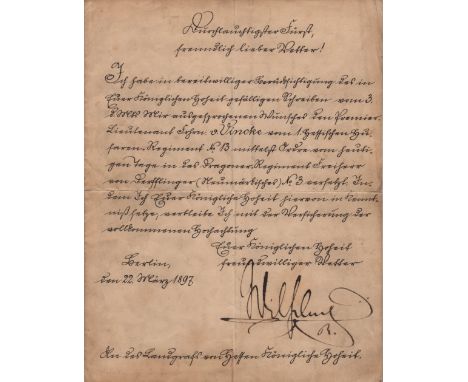 Durchlauchtigster Fürst,
freundlich lieber Vetter!
Ich habe in bereitwilliger Berücksichtigung des in
Euer Königlichen Hoheit gefälligen Schreiben vom 3.
d. Mts. Mir ausgesprochenen Wunsches den Premier-
Lieutenant Frhrn. v. Vincke vom 1. Hessischen Hu-
saren-Regiment № 13 mittelst Ordre vom heuti-
gen Tage in das Dragoner-Regiment Freiherr
von Derfflinger (Neumärkisches) № 3 versetzt. In-
dem Ich Euer Königliche Hoheit hiervon in Kennt-
niß setze, verbleibe Ich mit der Versicherung der
vollkommenen Hochachtung
Euer Königlichen Hoheit
freundwilliger Vetter
Berlin,
den 22. März 1897.
Wilhelm
R.
An des Landgrafs von Hessen Königliche Hoheit.